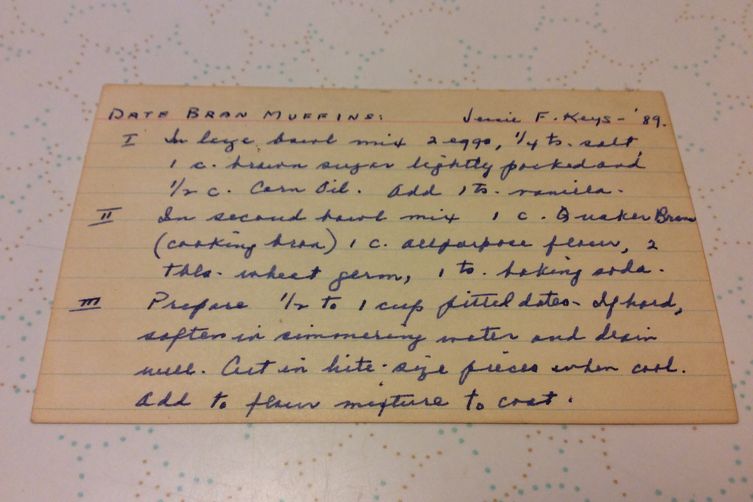 DATE BRAN MUFFINS: Jessie F. Keys - '89.
I In large bowl mix 2 eggs, 1/4 ts. salt,
1 c. brown sugar lightly packed and
1/2 c. Corn Oil. Add 1 ts. vanilla.
II In second bowl mix 1 c. Quaker Bran
(cooking bran) 1 c. allpurpose flour, 2
tbls. wheat germ, 1 ts. baking soda.
III Prepare 1/2 to 1 cup pitted dates - If hard,
soften in simmering water and drain
well. Cut in bite-size pieces when cool.
Add to flour mixture to coat.